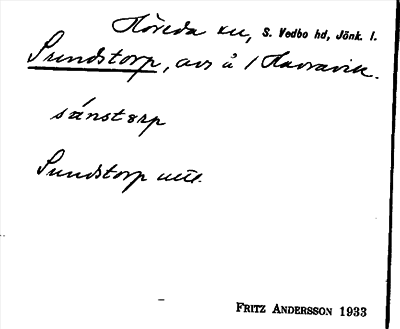 Höreda sn, S. Vedbo hd, Jönk. l.
Sundstorp, avs å 1 Havravik.
sánstərp
Sundstorp utt.
FRITZ ANDERSSON 1933